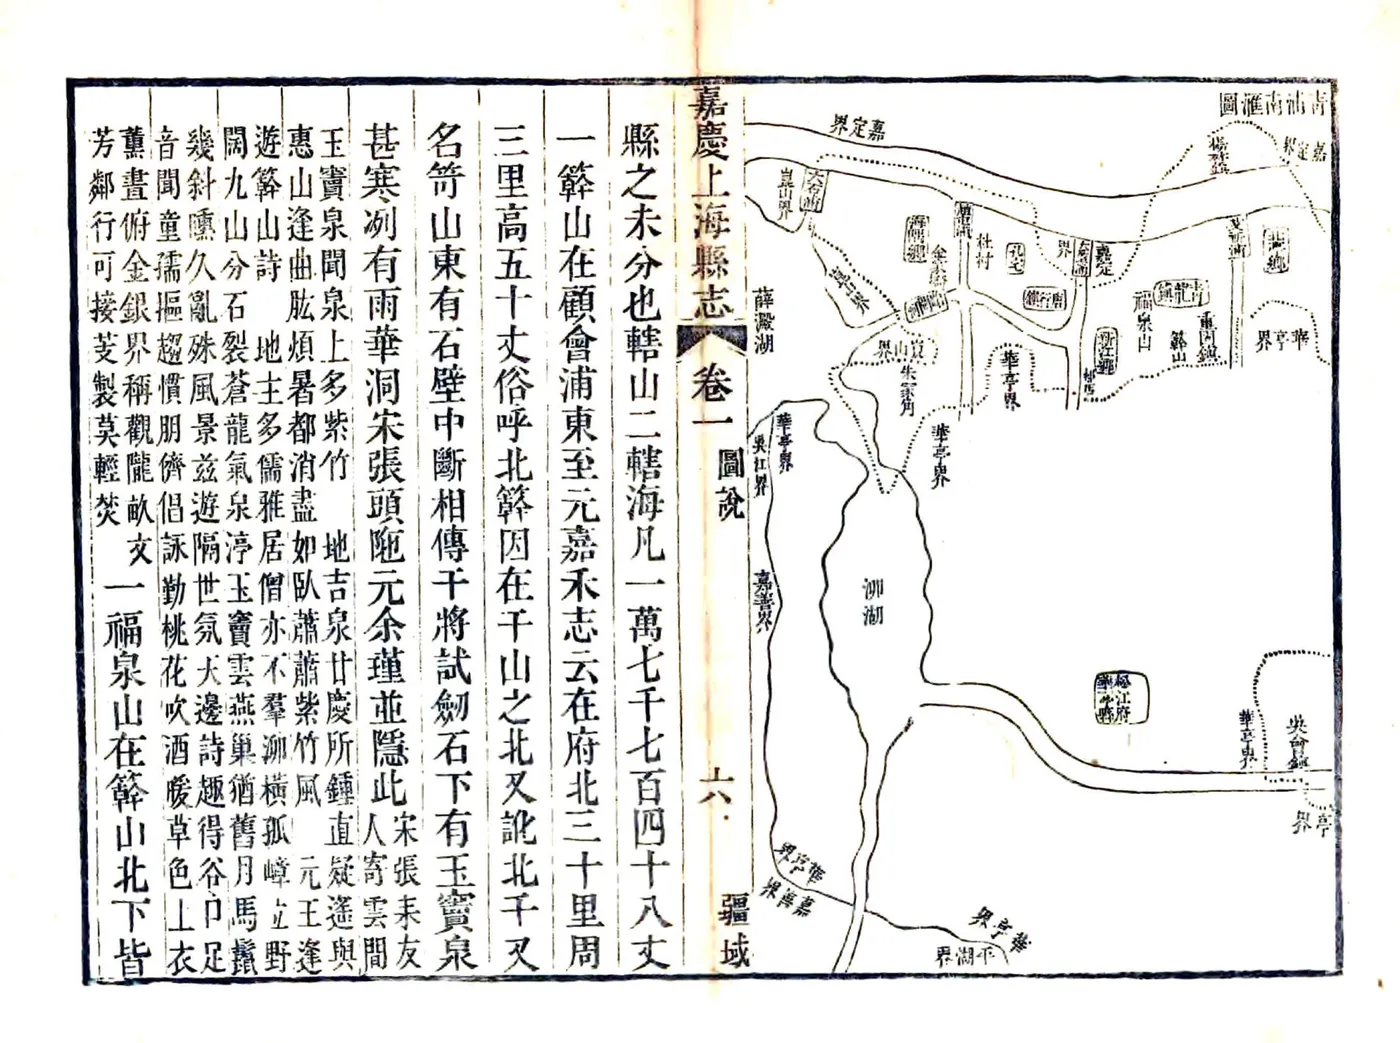 青浦南滙圖
嘉定界
嘉定界
崑山界
薛澱湖
杜村
嘉定
界
福泉山
簳山
華亭界
崑山界
朱家角
華亭界
華亭界
華亭界
吳江界
嘉善界
泖湖
松江府
華亭縣
華亭界
吳會鎮
亭界
華亭界
嘉善界
華亭界
平湖界
嘉慶上海縣志
卷一
圖說
六
疆域
縣之未分也轄山二轄海凡一萬七千七百四十八丈
一簳山在顧會浦東至元嘉禾志云在府北三十里周
三里高五十丈俗呼北簳因在千山之北又訛北千又
名笴山東有石壁中斷相傳干將試劒石下有玉寶泉
甚寒冽有雨華洞宋張頭陁元余瑾並隱此
宋張耒友
人寄雲間
玉寶泉聞泉上多紫竹 地吉泉甘慶所鍾直疑遙與
惠山逢曲肱煩暑都消盡如臥蕭蕭紫竹風 元王逢
遊簳山詩 地主多儒雅居僧亦不羣泖橫孤嶂立野
闊九山分石裂蒼龍氣泉渟玉寶雲燕巢猶舊月馬鬣
幾斜曛久亂殊風景兹遊隔世氛大邊詩趣得谷口足
音聞童孺摳趨慣朋儕倡詠勤桃花吹酒暖草色上衣
薰晝俯金銀界稱觀隴畝文
芳鄰行可接芰製莫輕焚
一福泉山在簳山北下皆